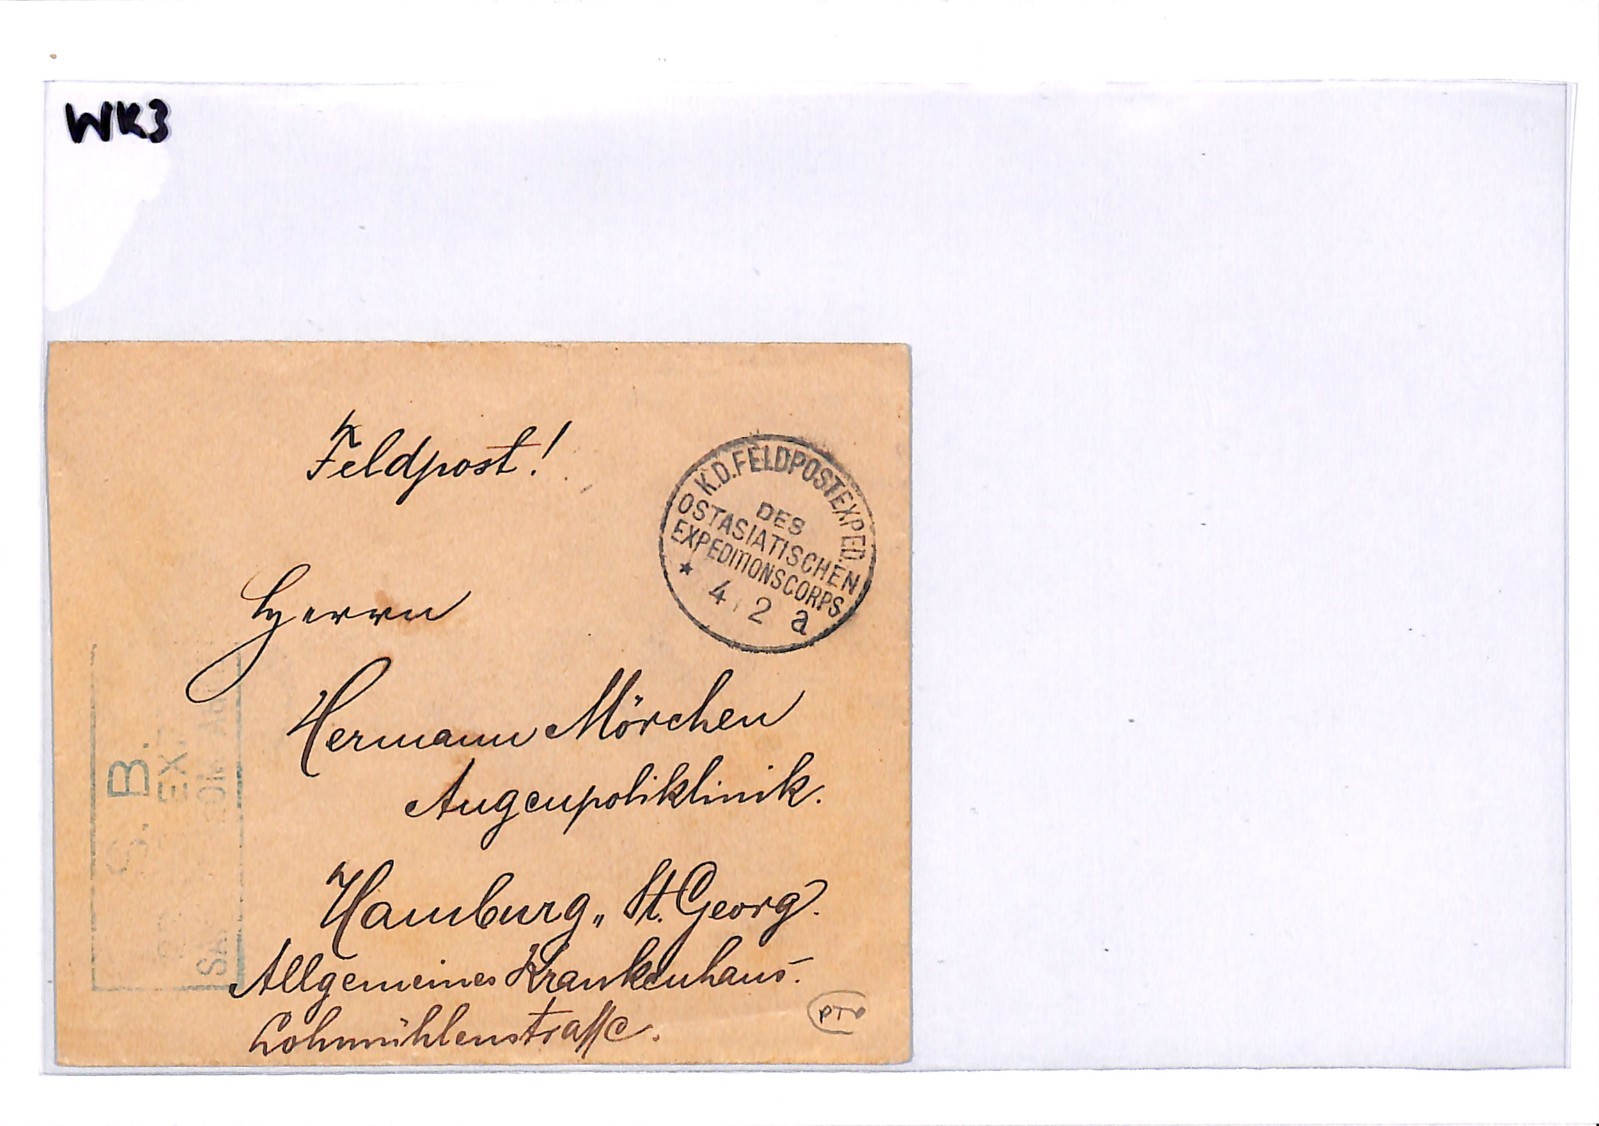 WK3
Feldpost!
K.D.FELDPOSTEXPED.
DES
OSTASIATISCHEN
EXPEDITIONSCORPS
* 4 2 a
Herrn
Hermann Mörchen
Augenpoliklinik.
Hamburg „ St. Georg.
Allgemeines Krankenhaus.
Lohmühlenstrasse.
S. B.
PTO